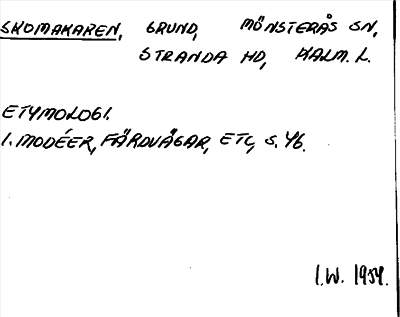 SKOMAKAREN, GRUND, MÖNSTERÅS SN,
STRANDA HD, KALM. L.
ETYMOLOGI.
I. MODÉER, FÄRDVÄGAR, ETC, S. 46.
I.W. 1954.